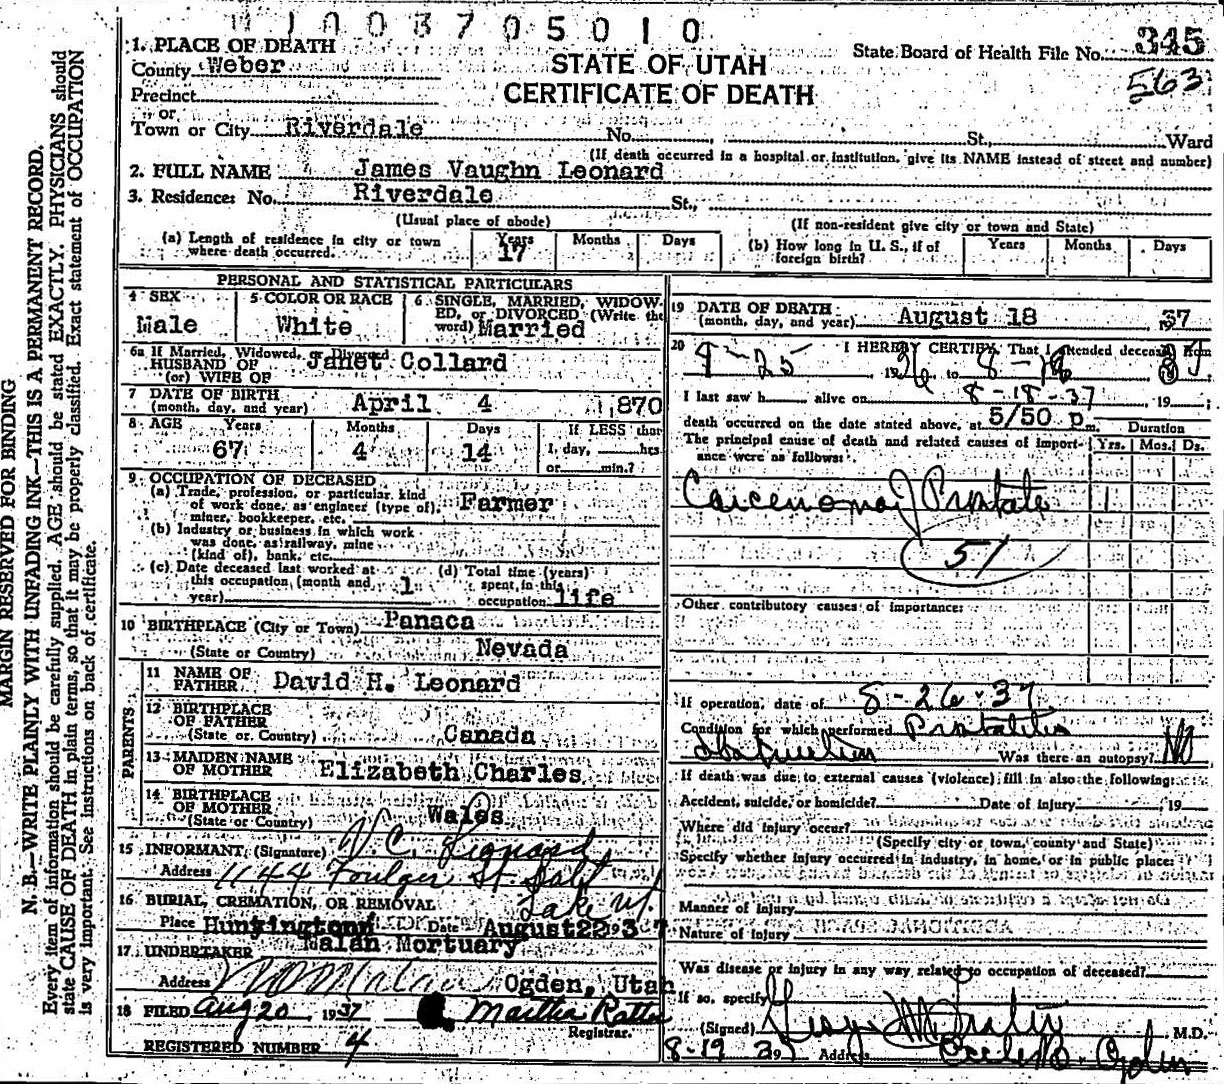 11003705010
345
563
State Board of Health File No.
STATE OF UTAH
CERTIFICATE OF DEATH
1. PLACE OF DEATH
County Weber
Precinct
or
Town or City Riverdale No. St., Ward
(If death occurred in a hospital or institution, give its NAME instead of street and number)
2. FULL NAME James Vaughn Leonard
3. Residence: No. Riverdale St.,
(Usual place of abode) (If non-resident give city or town and State)
(a) Length of residence in city or town where death occurred. Years 17 Months Days
(b) How long in U. S., if of foreign birth? Years Months Days
PERSONAL AND STATISTICAL PARTICULARS
4 SEX Male
5 COLOR OR RACE White
6 SINGLE, MARRIED, WIDOWED, or DIVORCED (Write the word) Married
6a If Married, Widowed, or Divorced
HUSBAND OF Janet Collard
(or) WIFE OF
7 DATE OF BIRTH
(month, day, and year) April 4 1870
8 AGE Years 67 Months 4 Days 14 If LESS than 1, day, hrs. or min.?
9 OCCUPATION OF DECEASED
(a) Trade, profession, or particular kind
of work done, as engineer (type of), Farmer
miner, bookkeeper, etc.
(b) Industry or business in which work
was done, as railway, mine
(kind of), bank, etc.
(c) Date deceased last worked at
this occupation (month and
year) 1
(d) Total time (years)
spent in this
occupation life
10 BIRTHPLACE (City or Town) Panaca
(State or Country) Nevada
PARENTS
11 NAME OF
FATHER David H. Leonard
12 BIRTHPLACE
OF FATHER
(State or Country) Canada
13 MAIDEN NAME
OF MOTHER Elizabeth Charles
14 BIRTHPLACE
OF MOTHER
(State or Country) Wales
15 INFORMANT (Signature) V. C. Leonard
Address 1144 Foulger St. Salt
Lake Ut.
16 BURIAL, CREMATION, OR REMOVAL
Place Huntington Date August 22 1937
17 UNDERTAKER Malan Mortuary
Address Ogden, Utah
18 FILED Aug 20, 1937 Martha Ratter
Registrar.
REGISTERED NUMBER 4
19 DATE OF DEATH
(month, day, and year) August 18 37
20 I HEREBY CERTIFY, That I attended deceased from
I last saw h alive on 8-18-37, 19
death occurred on the date stated above, at 5/50 p m. Duration
The principal cause of death and related causes of importance were as follows: Yrs. Mos. Ds.
Carcenoma of Prostate 1
51
Other contributory causes of importance:
If operation, date of 8-26-37
Condition for which performed Prostatitis
obstruction Was there an autopsy? No
If death was due to external causes (violence) fill in also the following:
Accident, suicide, or homicide? Date of injury 19
Where did injury occur?
(Specify city or town, county and State)
Specify whether injury occurred in industry, in home, or in public place:
Manner of Injury
Nature of Injury
Was disease or injury in any way related to occupation of deceased?
If so, specify
(Signed) M.D.
8-19 37 Address Eccles B. Ogden
MARGIN RESERVED FOR BINDING
N. B.—WRITE PLAINLY WITH UNFADING INK—THIS IS A PERMANENT RECORD.
Every item of information should be carefully supplied. AGE should be stated EXACTLY. PHYSICIANS should
state CAUSE OF DEATH in plain terms, so that it may be properly classified. Exact statement of OCCUPATION
is very important. See instructions on back of certificate.